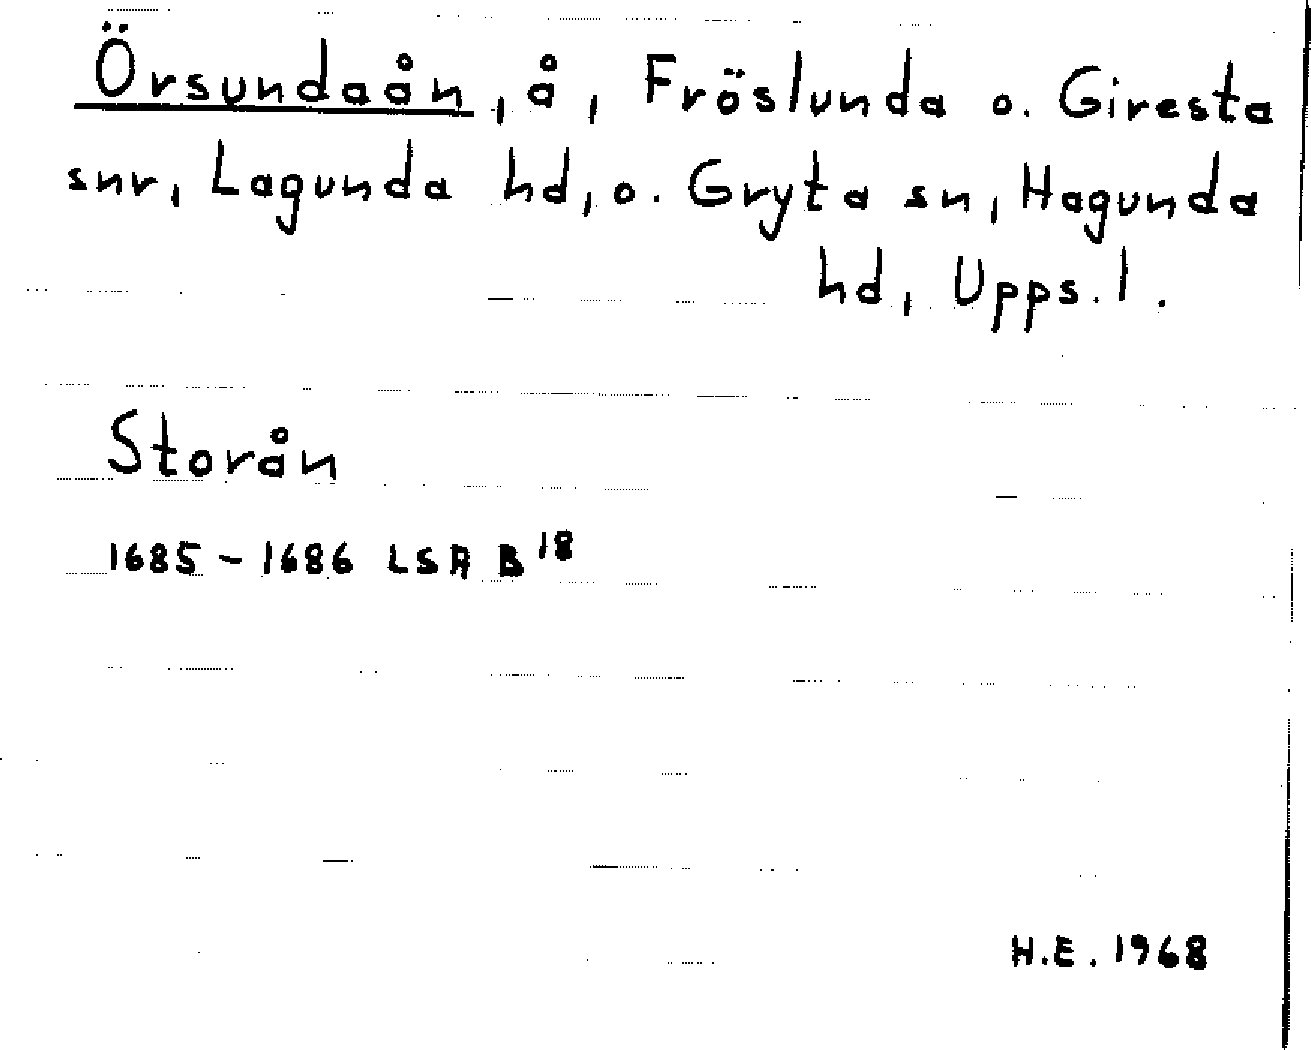 Örsundaån, å, Fröslunda o. Giresta
snr, Lagunda hd, o. Gryta sn, Hagunda
hd, Upps. l.
Storån
1685 - 1686 LSA B 18
H.E. 1968